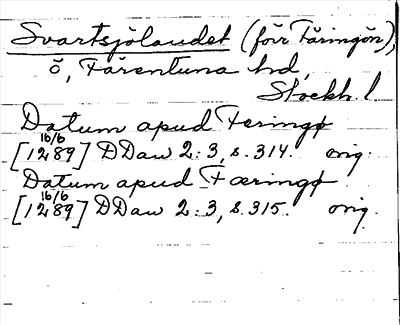 Svartsjölandet (förr Färingön),
ö, Färentuna hd,
Stockh. l
Datum apud Feringø
16/6
[1289] DDan 2:3, s. 314. orig.
Datum apud Færingø
16/6
[1289] DDan 2:3, s. 315. orig.